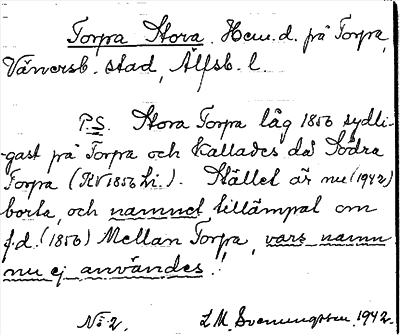 Torpa Stora. Hem.d. på Torpa,
Vänersb. stad, Älfsb. l.
P.S. Stora Torpa låg 1856 sydli-
gast på Torpa och kallades då Södra
Torpa (RV 1856 hi.). Stället är nu (1942)
borta, och namnet tillämpat om
f.d. (1856) Mellan Torpa, vars namn
nu ej användes.
No 2. L M. Svenungsson. 1942.